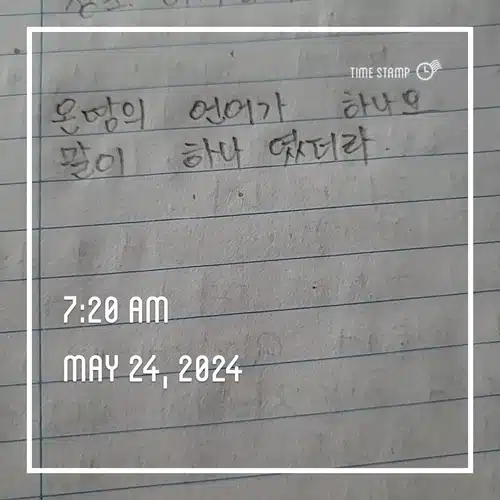 TIME STAMP
온땅의 언어가 하나요
말이 하나 였더라.
7:20 AM
MAY 24, 2024